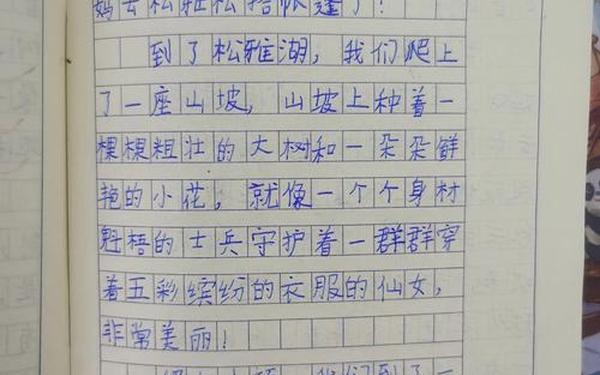 妈去松雅松搭帐篷了！
到了松雅湖，我们爬上
了一座山坡，山坡上种着一
棵棵粗壮的大树和一朵朵鲜
艳的小花，就像一个个身材
魁梧的士兵守护着一群群穿
着五彩缤纷的衣服的仙女，
非常美丽！
我们到了一